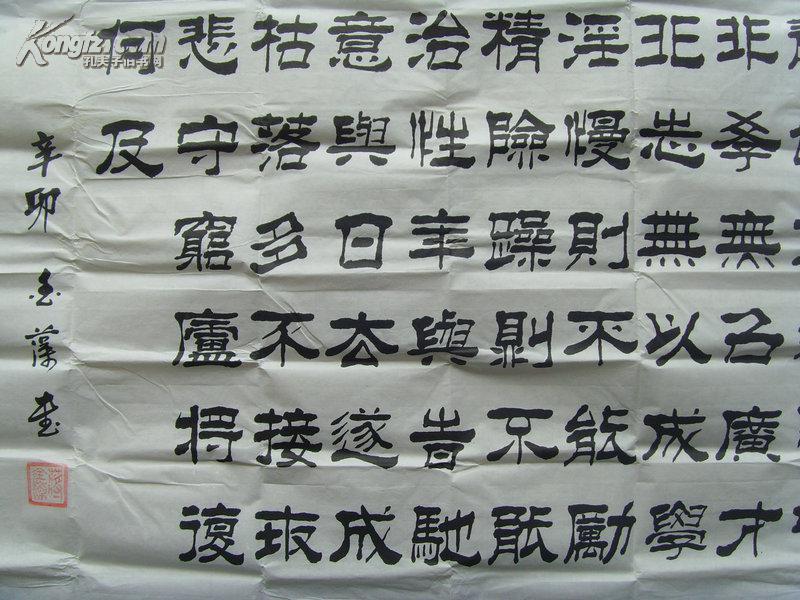 非学無以廣才
非志無以成學
淫慢則不能勵
精險躁則不能
治性年與旹馳
意與日去遂成
枯落多不接
悲守窮廬將復
何及
辛卯 金藻書
Kongfz.com
孔夫子旧书网